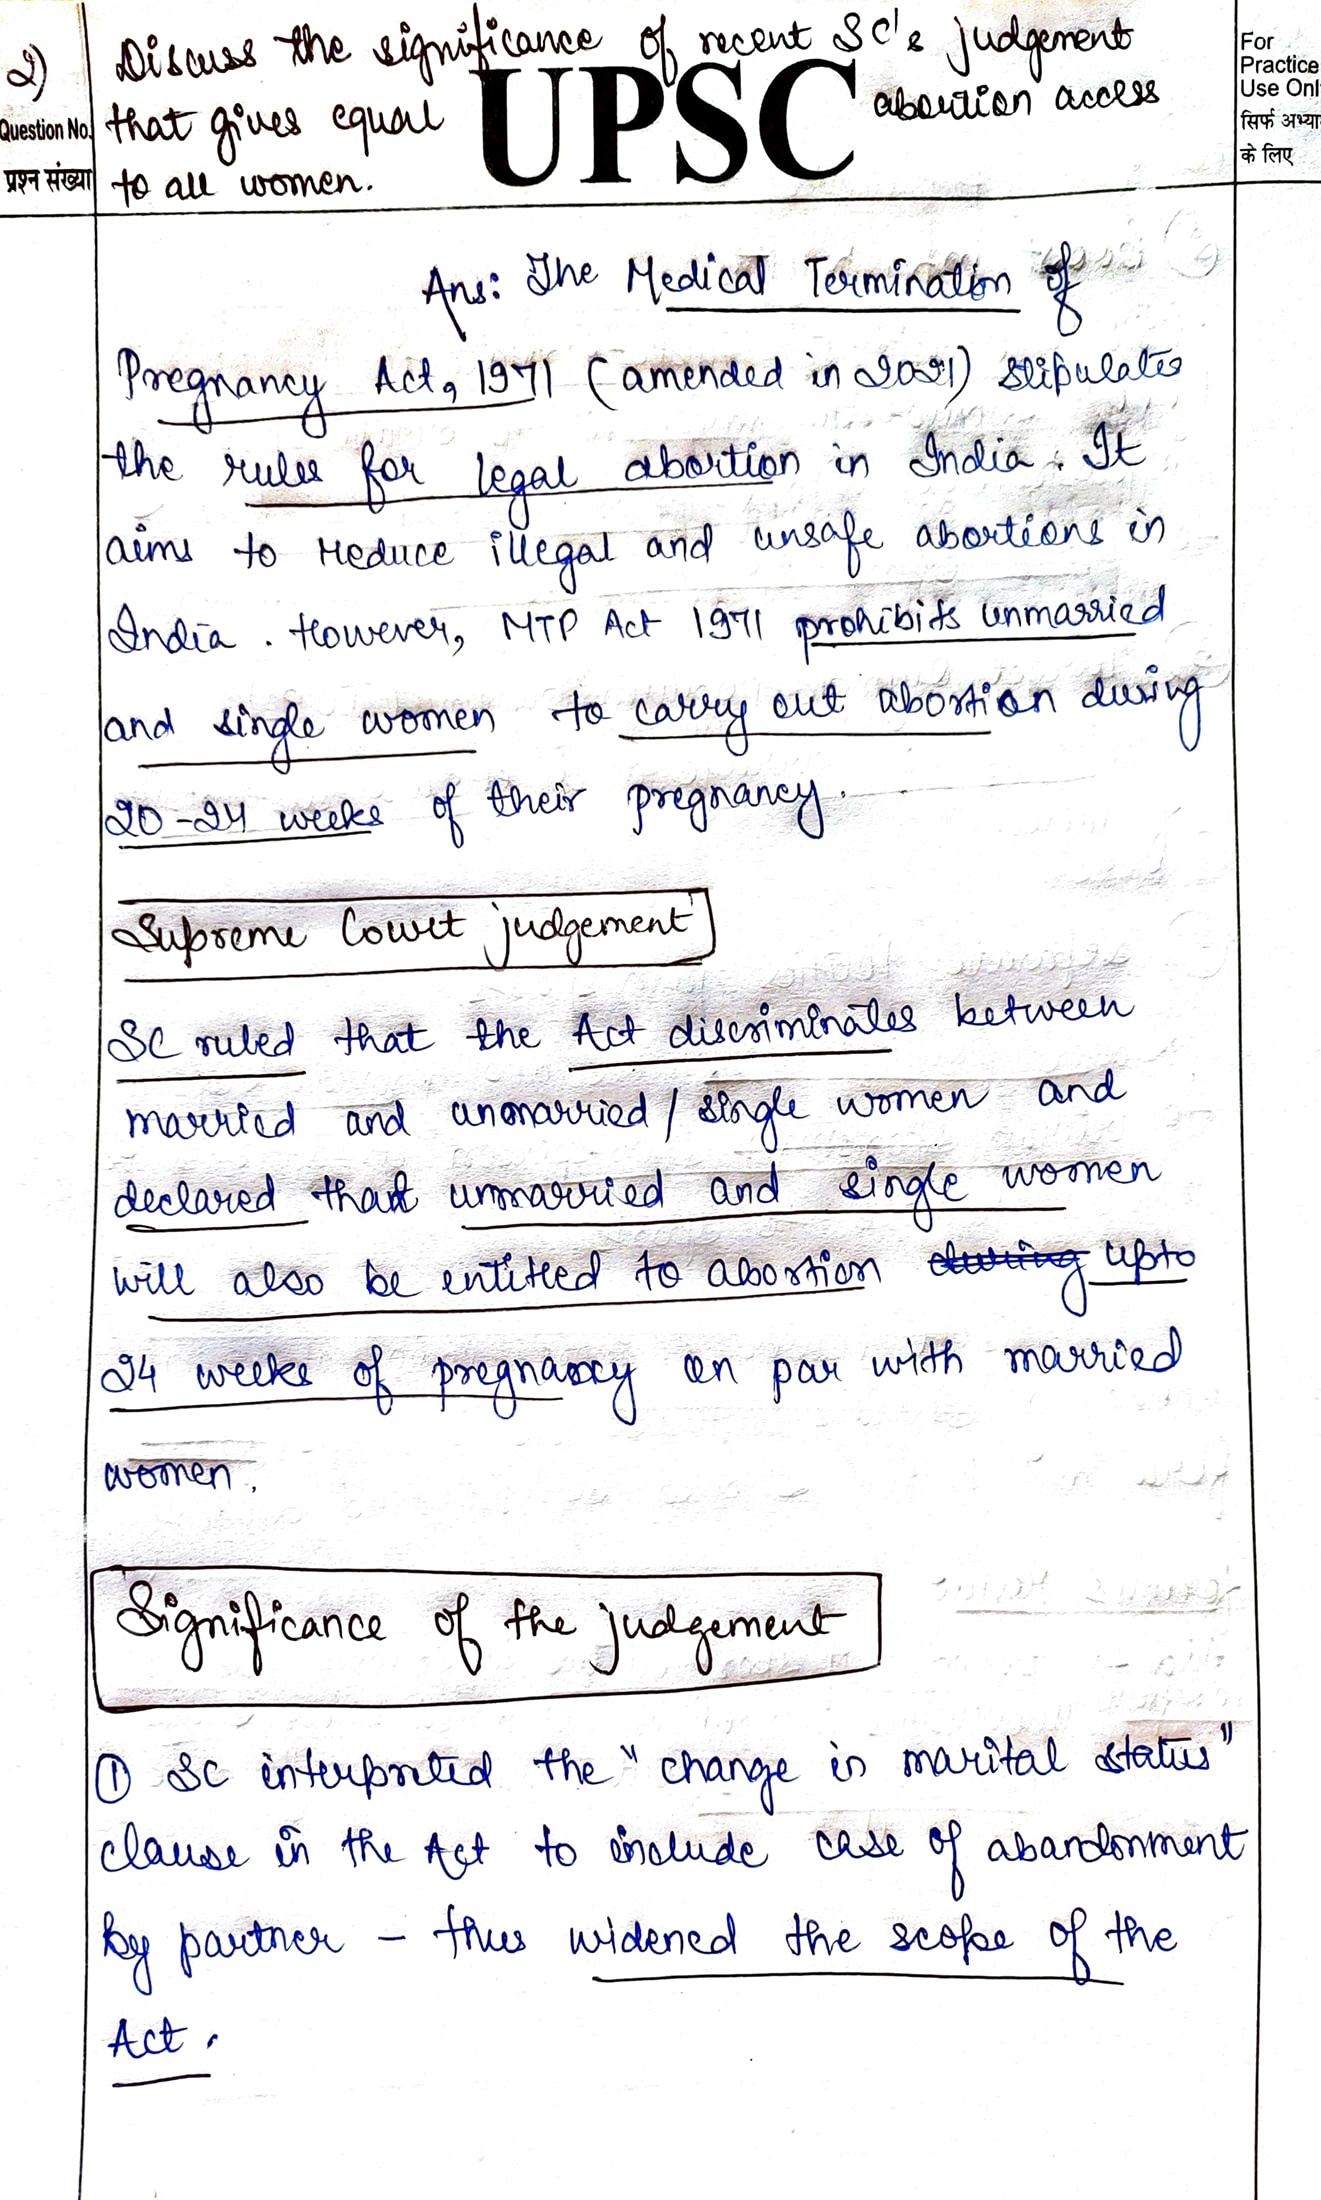 2)
Question No.
प्रश्न संख्या
Discuss the significance of recent SC's judgement
that gives equal abortion access
to all women.
UPSC
For
Practice
Use Onl
सिर्फ अभ्या
के लिए
Ans: The Medical Termination of
Pregnancy Act, 1971 (amended in 2021) stipulates
the rules for legal abortion in India. It
aims to reduce illegal and unsafe abortions in
India. However, MTP Act 1971 prohibits unmarried
and single women to carry out abortion during
20-24 weeks of their pregnancy.
Supreme Court judgement
SC ruled that the Act discriminates between
married and unmarried/single women and
declared that unmarried and single women
will also be entitled to abortion during upto
24 weeks of pregnancy on par with married
women.
Significance of the judgement
① SC interpreted the "change in marital status"
clause in the Act to include case of abandonment
by partner - thus widened the scope of the
Act.